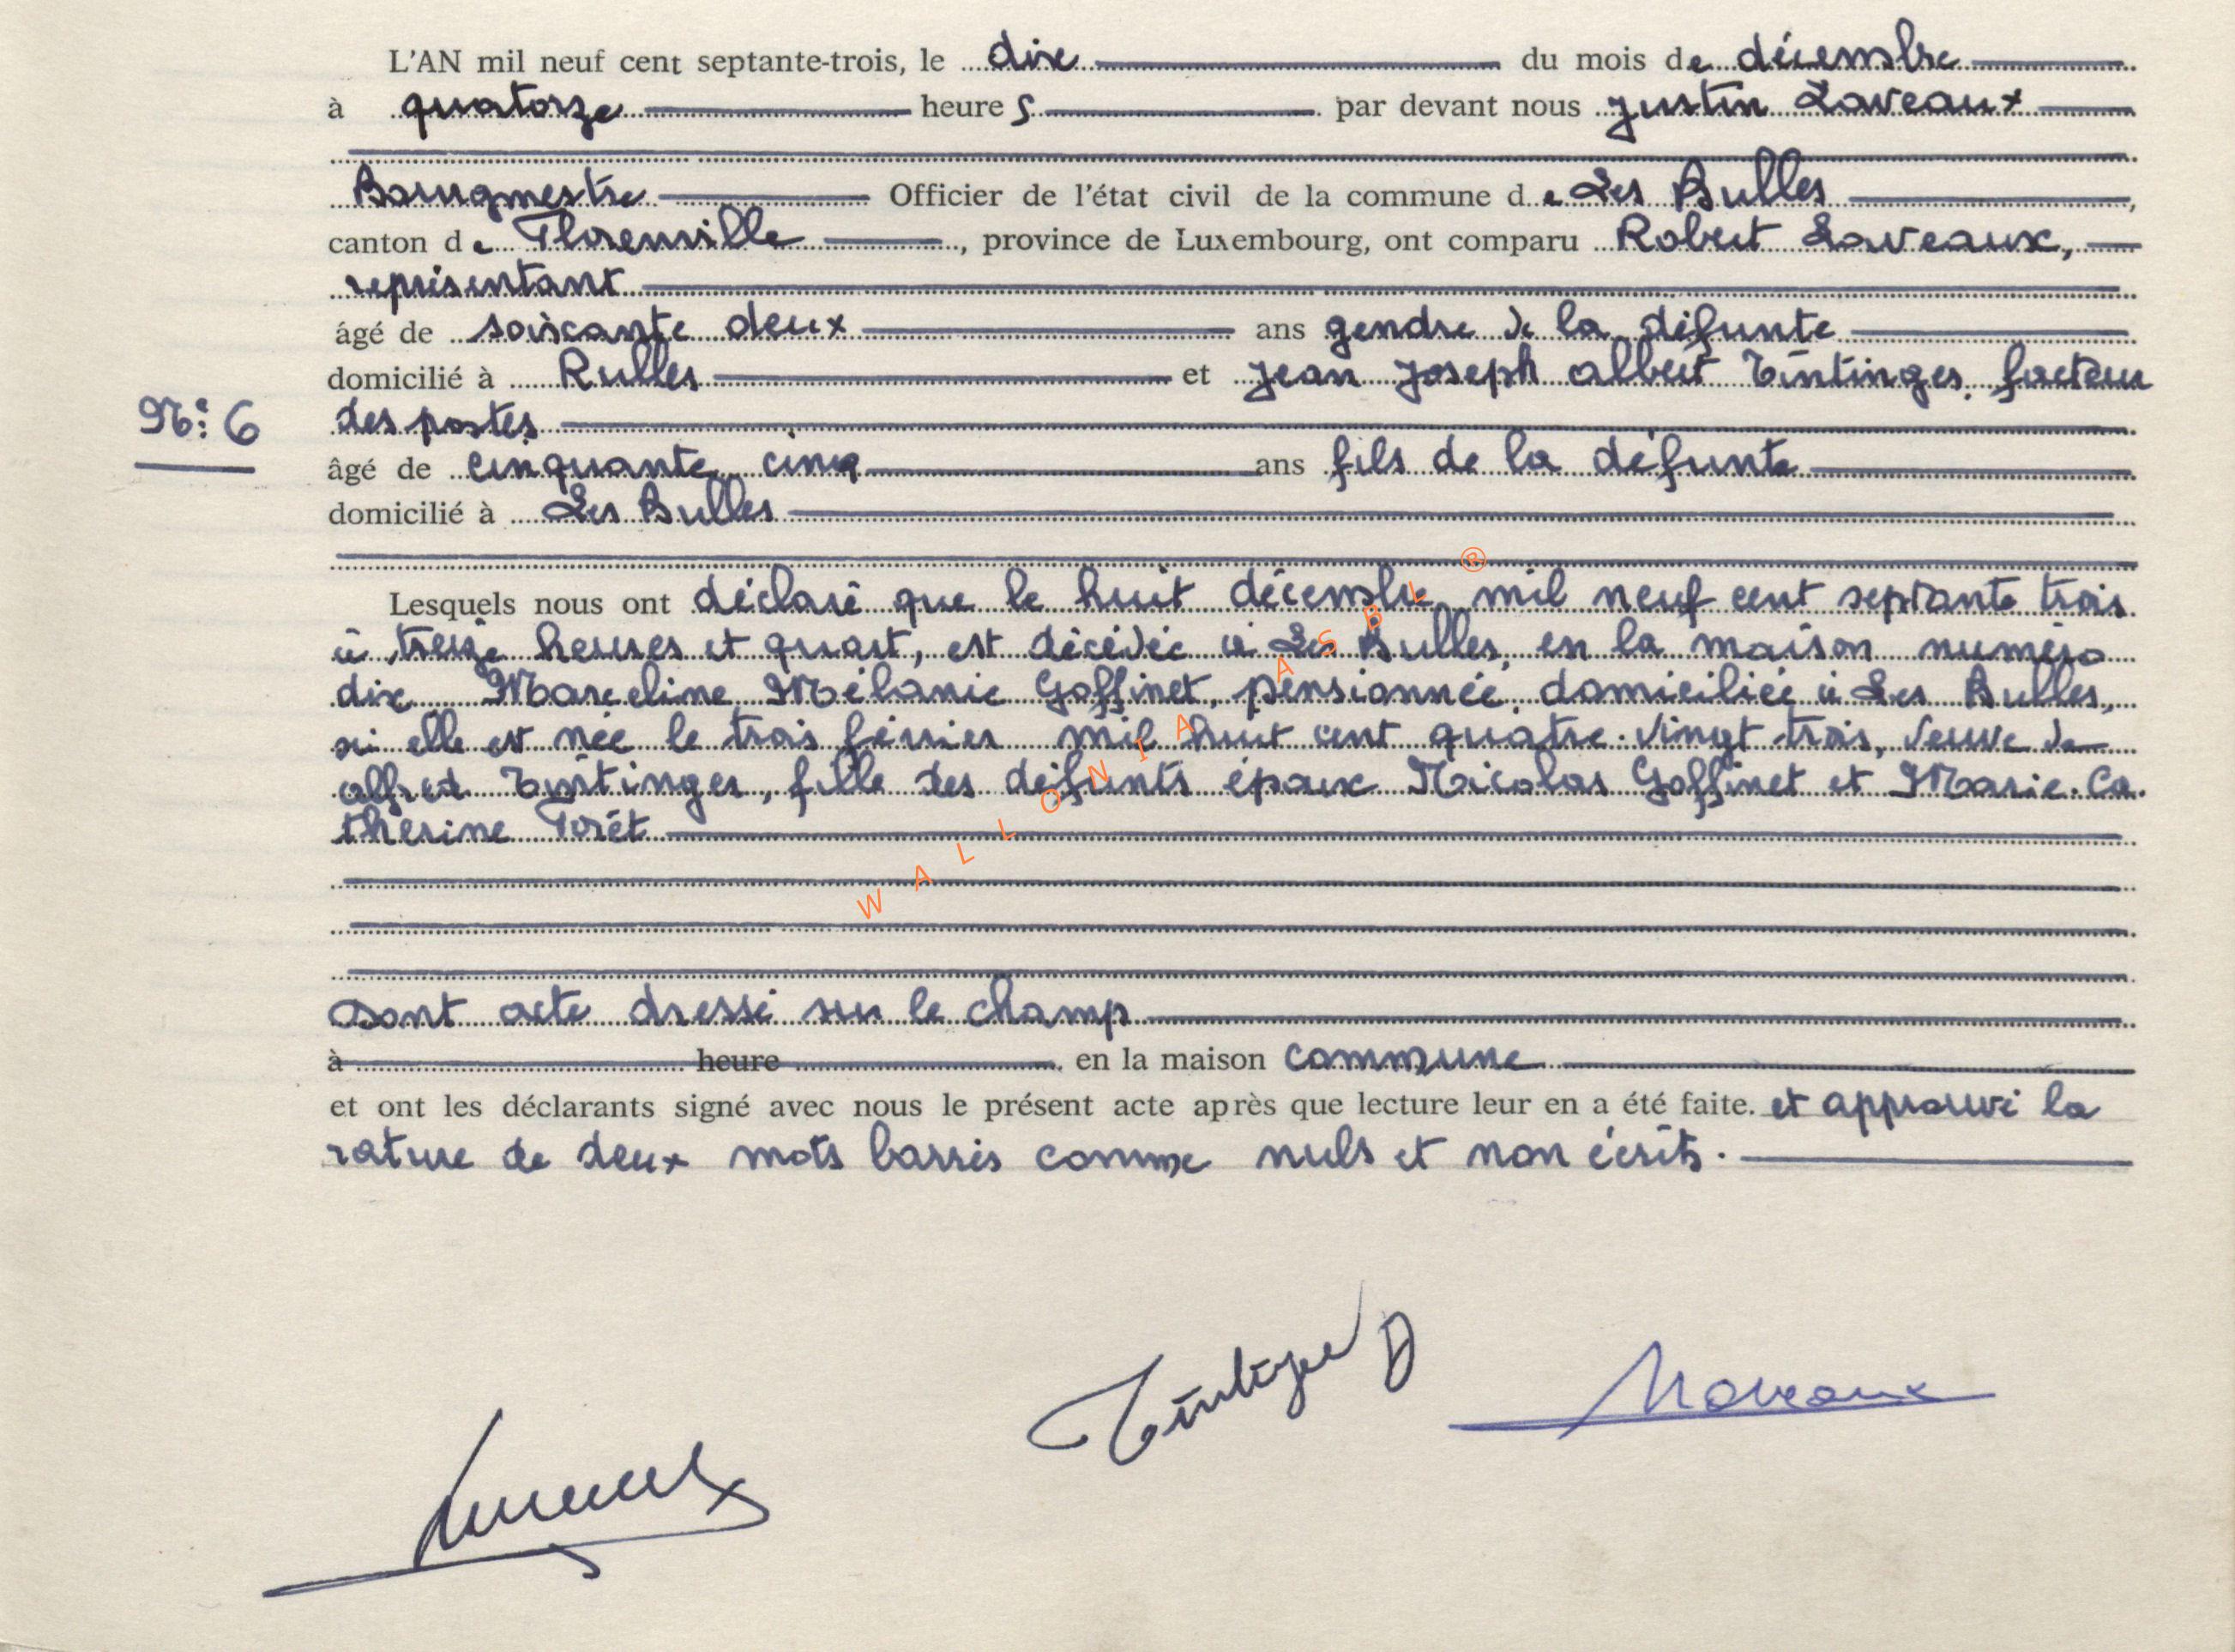 L'AN mil neuf cent septante-trois, le dix du mois de décembre
à quatorze heures par devant nous Justin Laveaux
Bourgmestre Officier de l'état civil de la commune de Les Bulles,
canton de Florenville, province de Luxembourg, ont comparu Robert Laveaux,
représentant
âgé de soixante deux ans gendre de la défunte
domicilié à Rulles et Jean Joseph Albert Tintinger, facteur
N° 6
des postes
âgé de cinquante cinq ans fils de la défunte
domicilié à Les Bulles
Lesquels nous ont déclaré que le huit décembre mil neuf cent septante trois
à treize heures et quart, est décédée à Les Bulles, en la maison numéro
dix Marceline Mélanie Goffinet, pensionnée, domiciliée à Les Bulles,
où elle est née le trois février mil huit cent quatre-vingt-trois, veuve de
Alfred Tintinger, fille des défunts époux Nicolas Goffinet et Marie-Ca-
therine Forêt
WALLONIA ASBL ®
Dont acte dressé sur le champ
à heure en la maison commune
et ont les déclarants signé avec nous le présent acte après que lecture leur en a été faite. et approuvé la
rature de deux mots barrés comme nuls et non écrits.
Laveaux